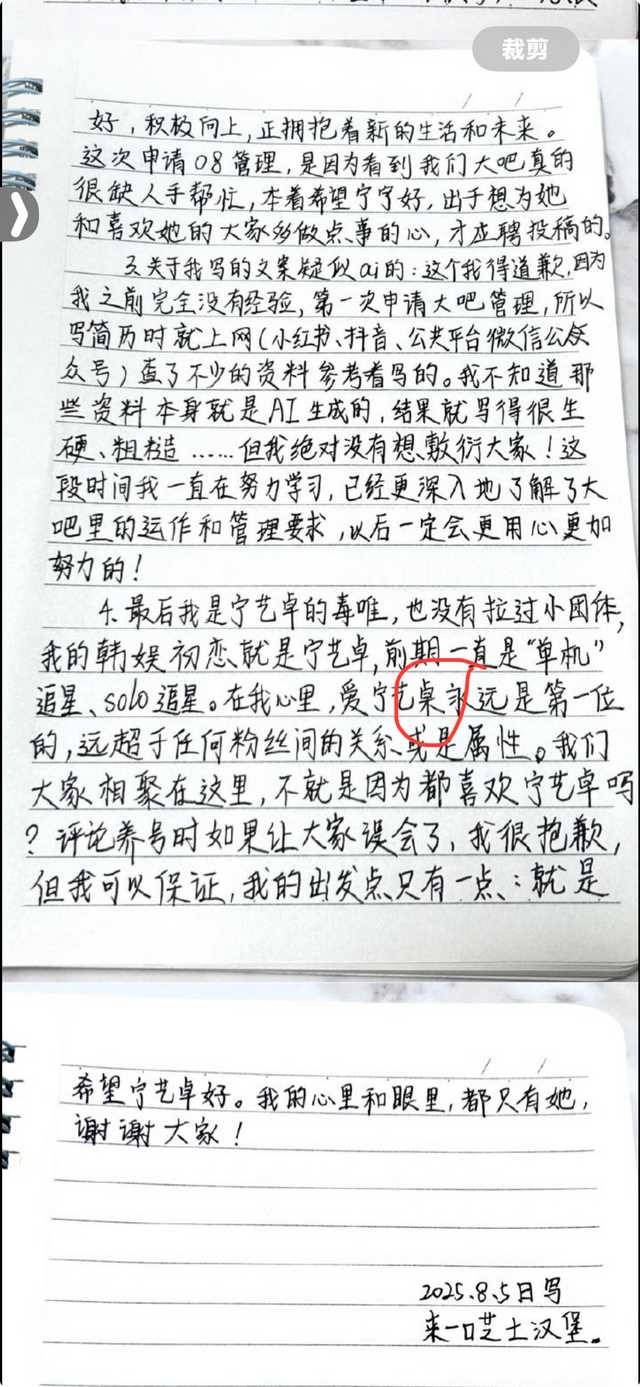 裁剪
好，积极向上，正拥抱着新的生活和未来。
这次申请08管理，是因为看到我们大吧真的
很缺人手帮忙，本着希望宁宁好，出于想为她
和喜欢她的大家多做点事的心，才应聘投稿的。
3.关于我写的文案疑似ai的：这个我得道歉，因为
我之前完全没有经验，第一次申请大吧管理，所以
写简历时就上网（小红书、抖音、公共平台微信公众
众号）查了不少的资料参考着写的。我不知道那
些资料本身就是AI生成的，结果就写得很生
硬、粗糙……但我绝对没有想敷衍大家！这
段时间我一直在努力学习，已经更深入地了解了大
吧里的运作和管理要求，以后一定会更用心更加
努力的！
4.最后我是宁艺卓的毒唯，也没有拉过小团体，
我的韩娱初恋就是宁艺卓，前期一直是“单机”
追星、solo追星。在我心里，爱宁艺桌永远是第一位
的，远超于任何粉丝间的关系或是属性。我们
大家相聚在这里，不就是因为都喜欢宁艺卓吗
？评论养号时如果让大家误会了，我很抱歉，
但我可以保证，我的出发点只有一点：就是
希望宁艺卓好。我的心里和眼里，都只有她，
谢谢大家！
2025.8.5日写
来一口芝士汉堡。